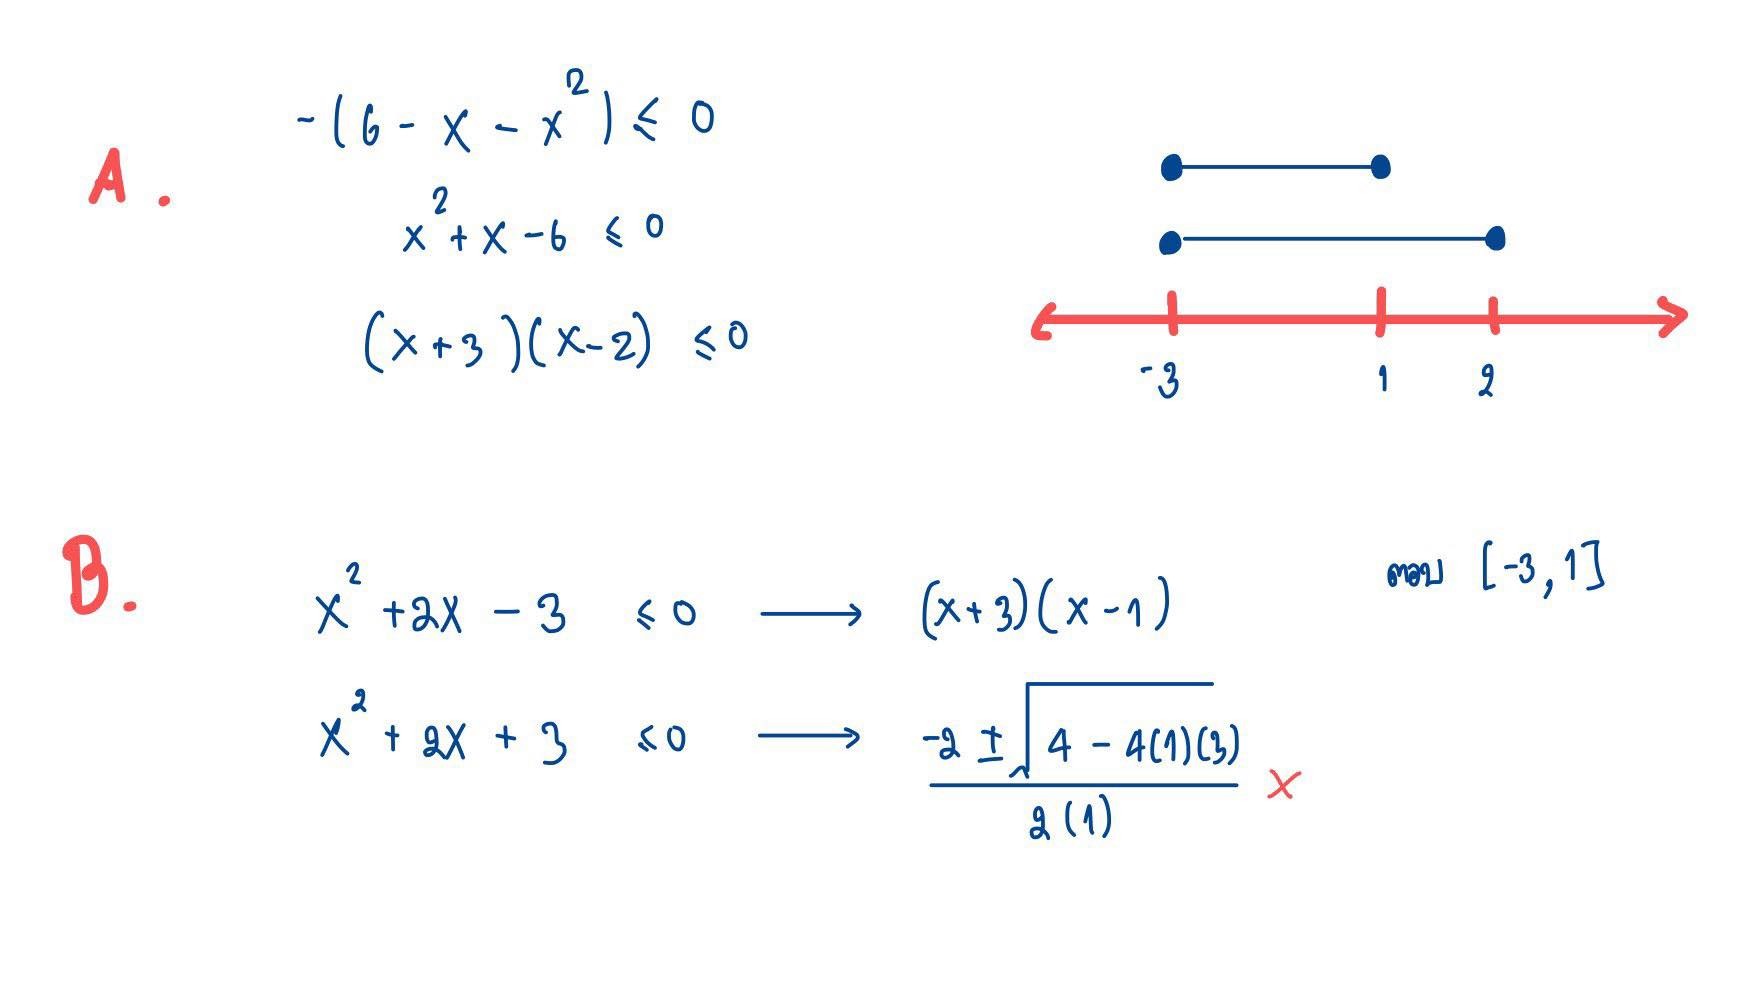 A.
-(6 - x - x²) ≤ 0
x² + x - 6 ≤ 0
(x + 3)(x - 2) ≤ 0
-3 1 2
B.
x² + 2x - 3 ≤ 0 → (x + 3)(x - 1)
x² + 2x + 3 ≤ 0 → (-2 ± √(4 - 4(1)(3))) / 2(1) ×
ตอบ [-3, 1]